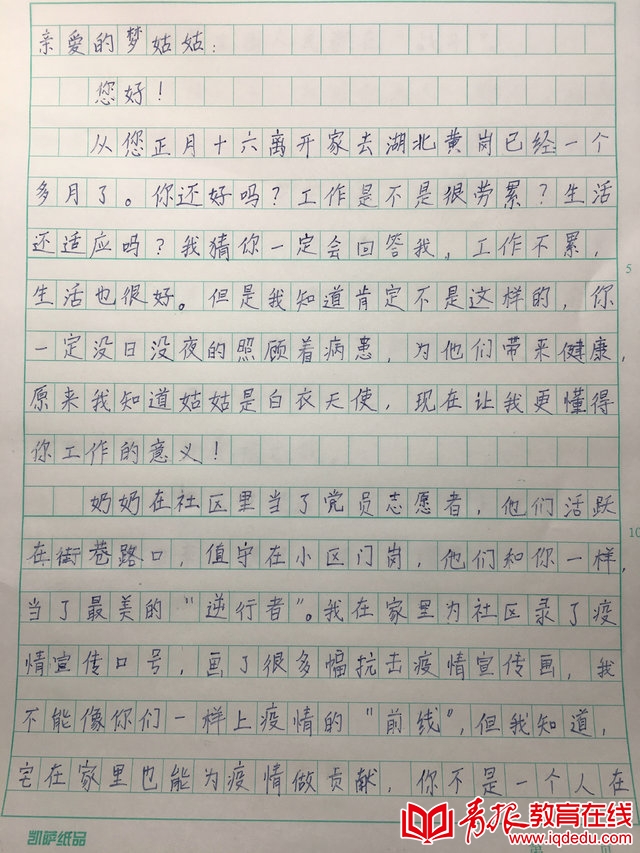 亲爱的梦姑姑：
您好！
从您正月十六离开家去湖北黄岗已经一个
多月了。你还好吗？工作是不是很劳累？生活
还适应吗？我猜你一定会回答我，工作不累，
生活也很好。但是我知道肯定不是这样的，你
一定没日没夜的照顾着病患，为他们带来健康，
原来我知道姑姑是白衣天使，现在让我更懂得
你工作的意义！
奶奶在社区里当了党员志愿者，他们活跃
在街巷路口，值守在小区门岗，他们和你一样，
当了最美的“逆行者”。我在家里为社区录了疫
情宣传口号，画了很多幅抗击疫情宣传画，我
不能像你们一样上疫情的“前线”，但我知道，
宅在家里也能为疫情做贡献，你不是一个人在
5
10
凯萨纸品
青报教育在线
www.iqdedu.com